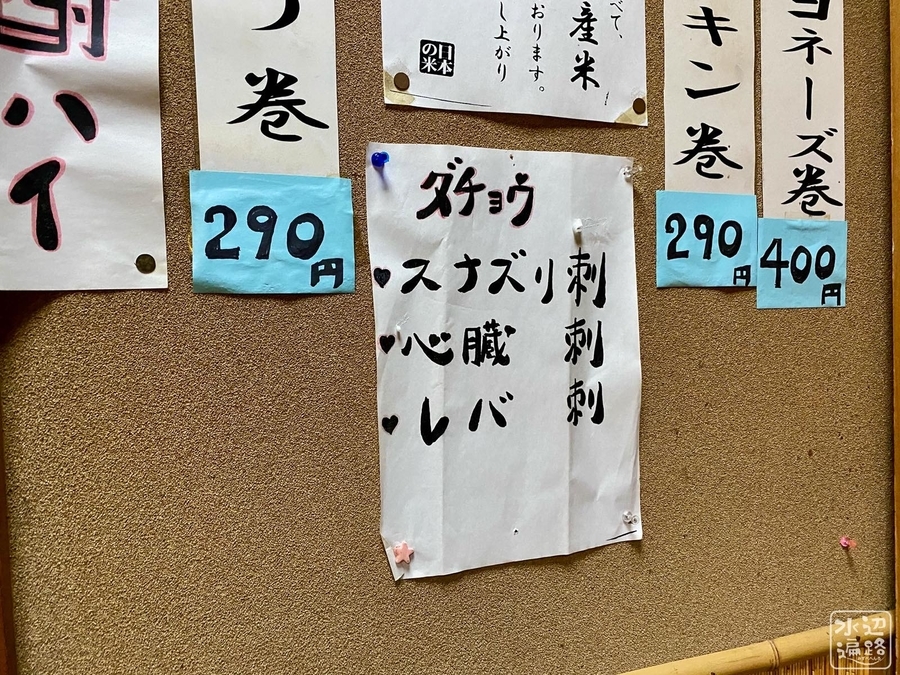 酎ハイ
巻
290
円
べて、
産米
おります。
し上がり
日本
の米
ダチョウ
♥スナズリ刺
♥心臓 刺
♥レバ 刺
キン巻
290
円
ヨネーズ巻
400
円
水辺
遍路